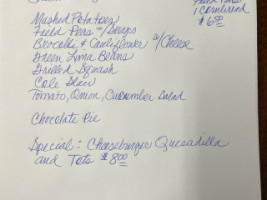 1 Cornbread
$6.00
Mashed Potatoes
Field Peas w/Snaps
Brocolli & Cauliflower w/Cheese
Green Lima Beans
Grilled Squash
Cole Slaw
Tomato, Onion, Cucumber Salad
Chocolate Pie
Special: Cheeseburger Quesadilla
and Tots $8.00